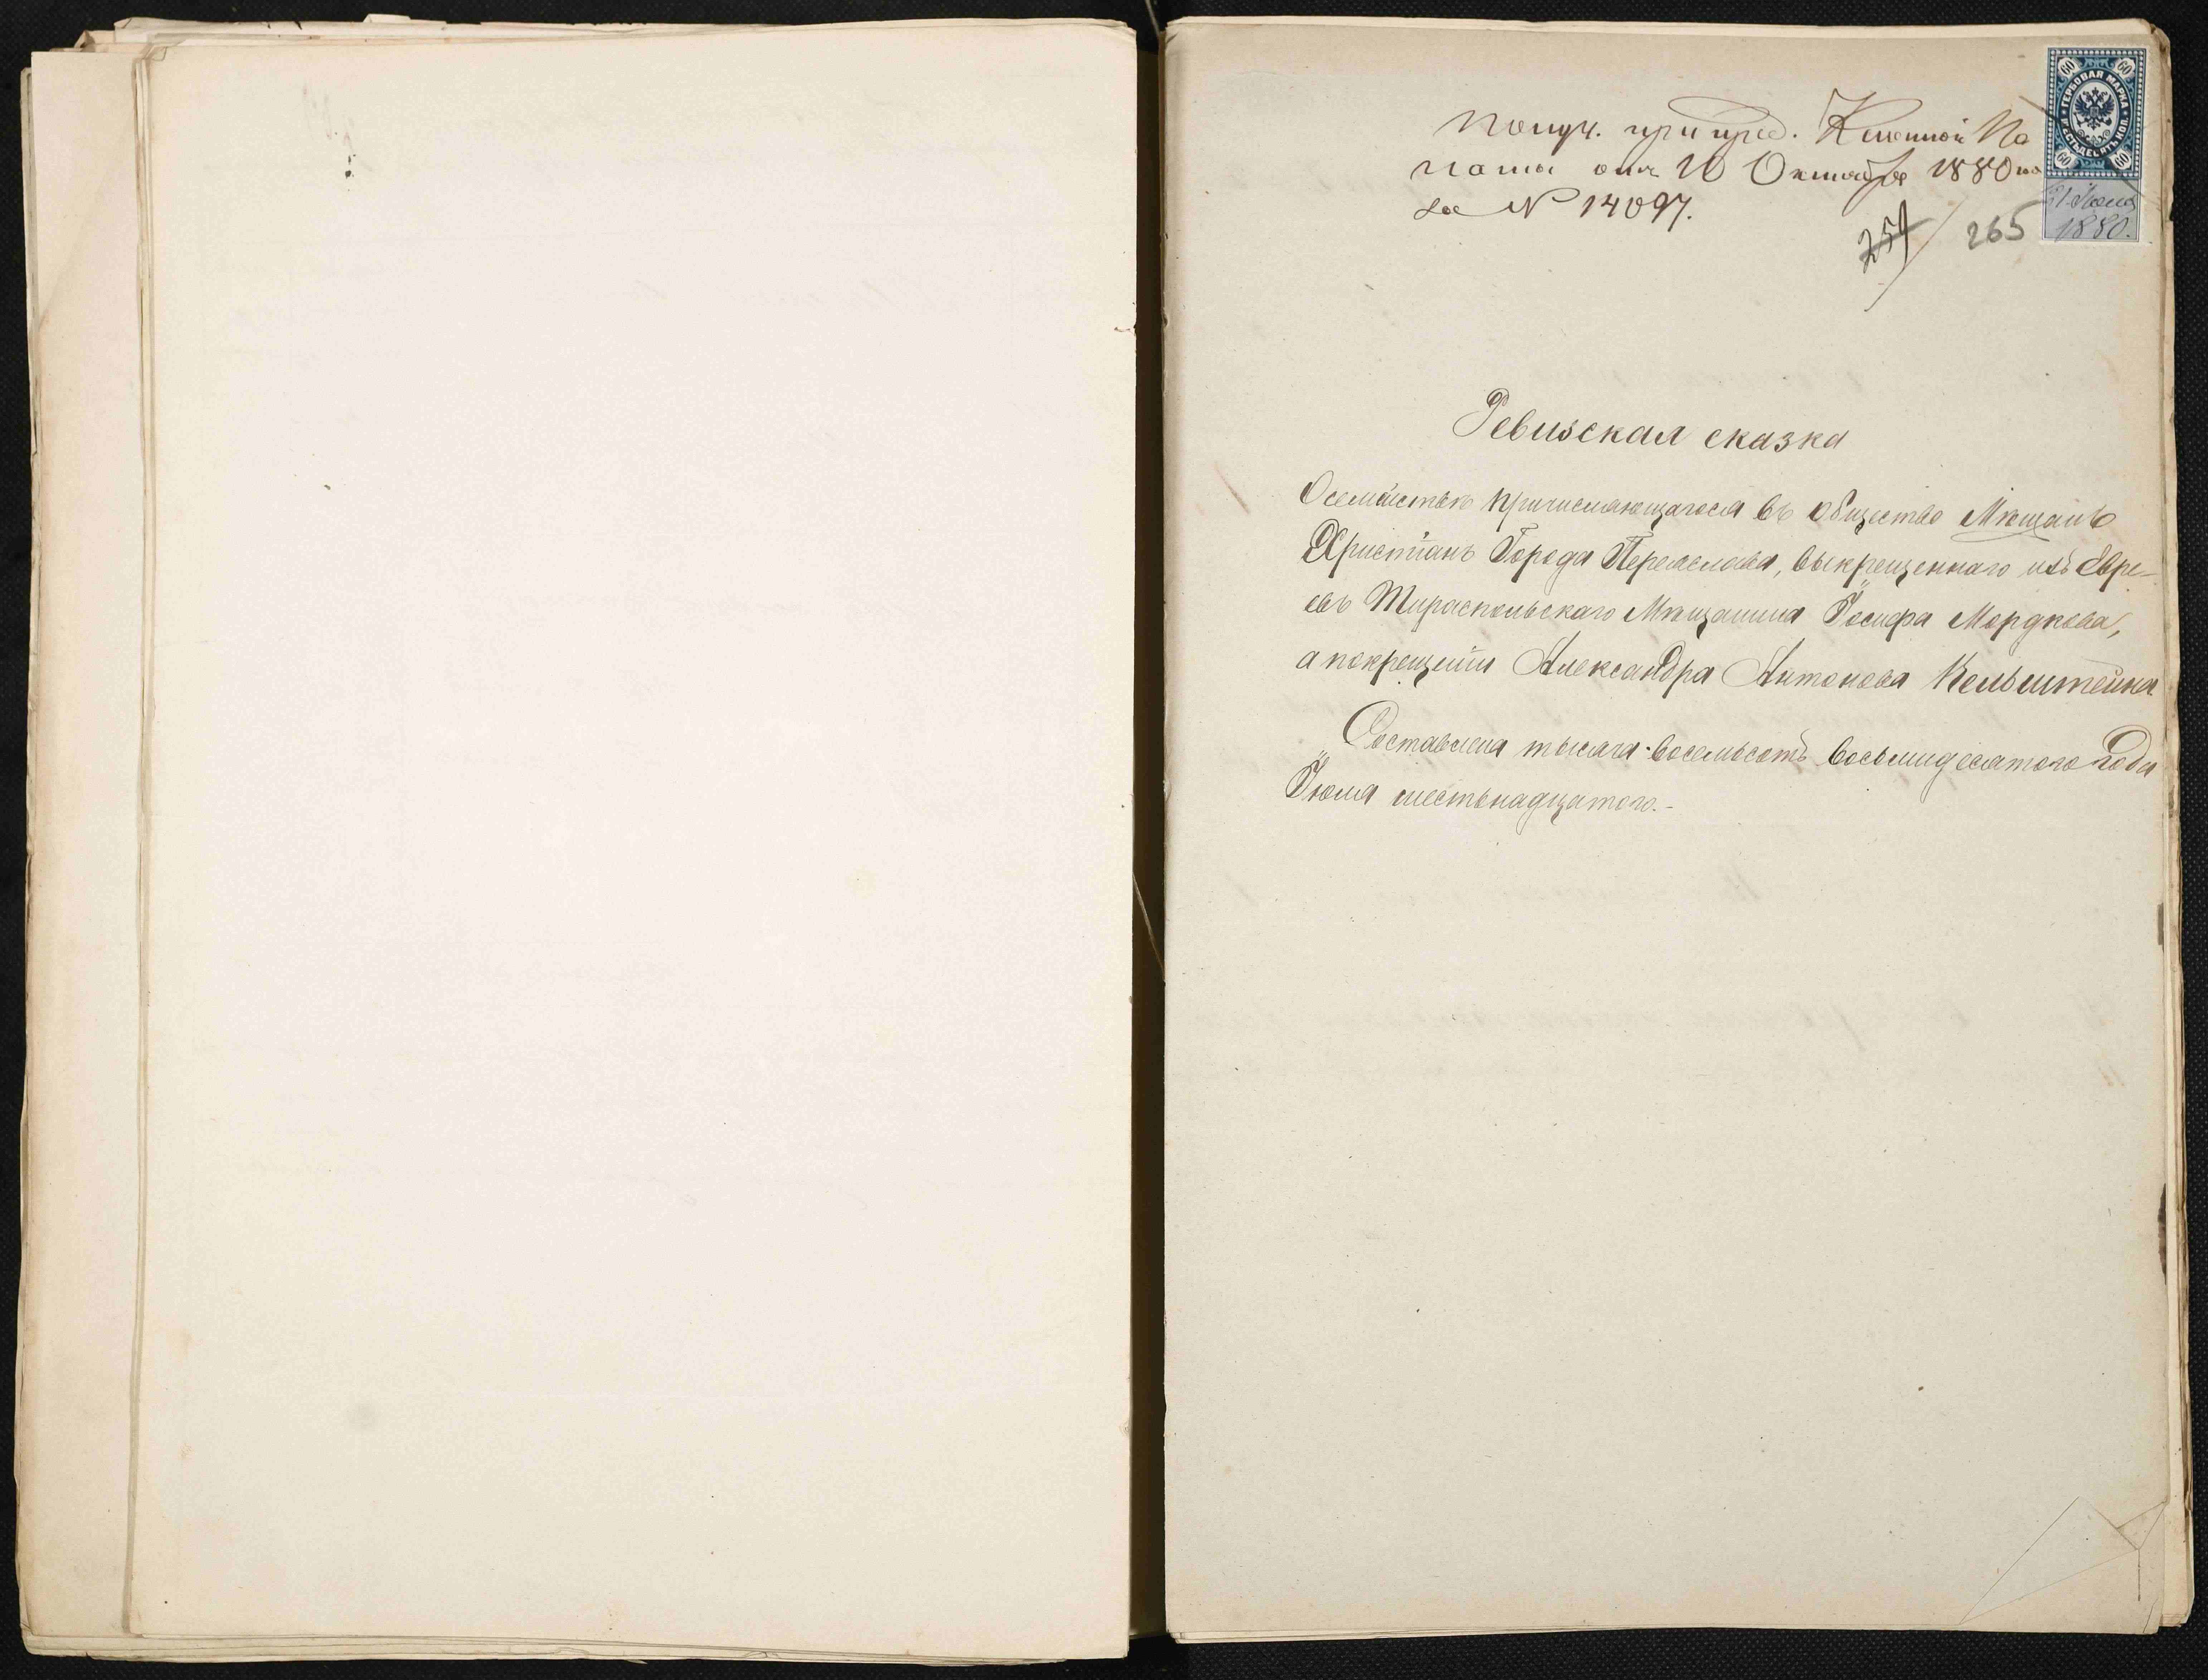 Получ. при пред. Казенной Па
латы отъ 10 Октября 1880 го
за № 14097.
60 60
ГЕРБОВАЯ МАРКА
ШЕСТЬДЕСЯТЪ КОП.
60 60
21 Июня
1880.
257 265
Ревизская сказка
О семѣйствѣ причисляющагося въ общество Мѣщанъ
Христіанъ Города Переяслава, выкрещеннаго изъ Евре-
евъ Тираспольскаго Мѣщанина Іосифа Мордкова,
а по крещеніи Александра Антонова Кельштейна.
Составлена тысяча восемьсотъ восьмидесятого года
Іюня шестьнадцатого.-